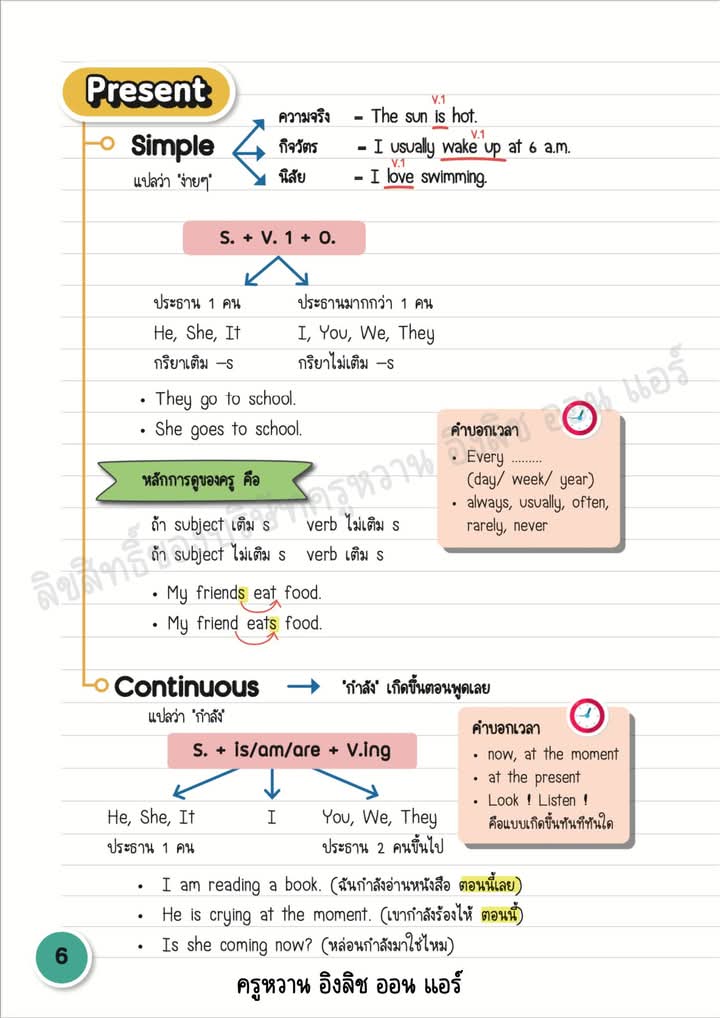 Present
V.1
Simple
ความจริง – The sun is hot.
V.1
กิจวัตร – I usually wake up at 6 a.m.
V.1
แปลว่า "ง่ายๆ"
นิสัย – I love swimming.
S. + V. 1 + O.
ประธาน 1 คน ประธานมากกว่า 1 คน
He, She, It I, You, We, They
กริยาเติม –s กริยาไม่เติม –s
• They go to school.
• She goes to school.
คำบอกเวลา
• Every .........
(day/ week/ year)
• always, usually, often,
rarely, never
หลักการดูของครู คือ
ถ้า subject เติม s verb ไม่เติม s
ถ้า subject ไม่เติม s verb เติม s
• My friends eat food.
• My friend eats food.
Continuous
"กำลัง" เกิดขึ้นตอนพูดเลย
แปลว่า "กำลัง"
S. + is/am/are + V.ing
คำบอกเวลา
• now, at the moment
• at the present
• Look ! Listen !
คือแบบเกิดขึ้นทันทีทันใด
He, She, It I You, We, They
ประธาน 1 คน ประธาน 2 คนขึ้นไป
• I am reading a book. (ฉันกำลังอ่านหนังสือ ตอนนี้เลย)
• He is crying at the moment. (เขากำลังร้องไห้ ตอนนี้)
• Is she coming now? (หล่อนกำลังมาใช่ไหม)
6
ครูหวาน อิงลิช ออน แอร์
ลิขสิทธิ์ของบริษัทครูหวาน อิงลิช ออน แอร์